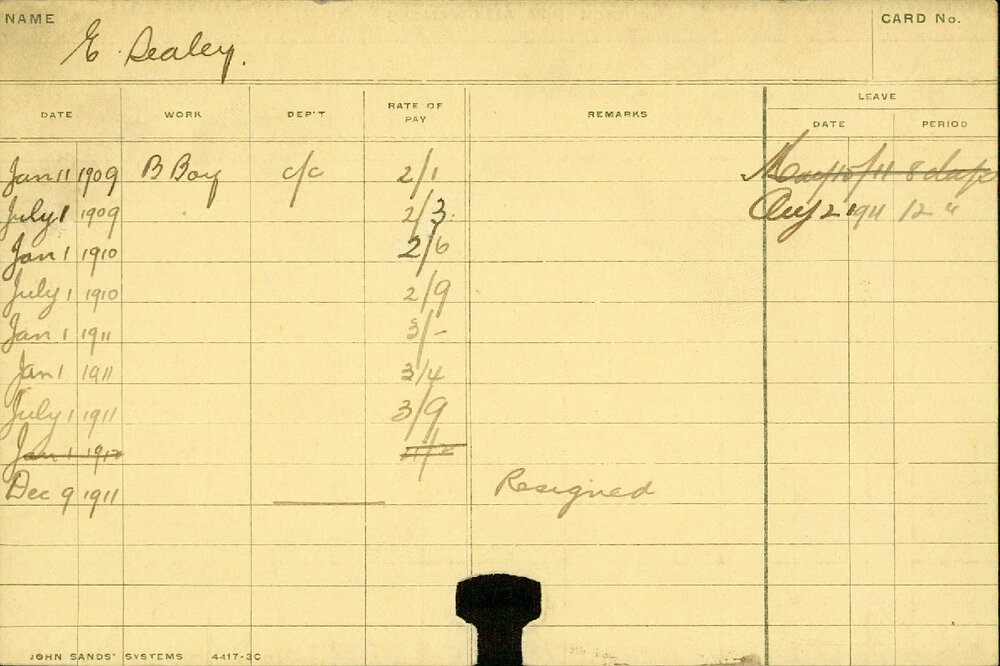 NAME
CARD No.
E. Sealey.
LEAVE
DATE WORK DEP'T RATE OF PAY REMARKS DATE PERIOD
Jan 11 1909 B Boy c/c 2/1 May 10/11 8 days
July 1 1909 2/3 Aug 2 1911 12 "
Jan 1 1910 2/6
July 1 1910 2/9
Jan 1 1911 3/-
Jan 1 1911 3/4
July 1 1911 3/9
Jan 1 1912
Dec 9 1911 Resigned
JOHN SANDS' SYSTEMS 4417-3C